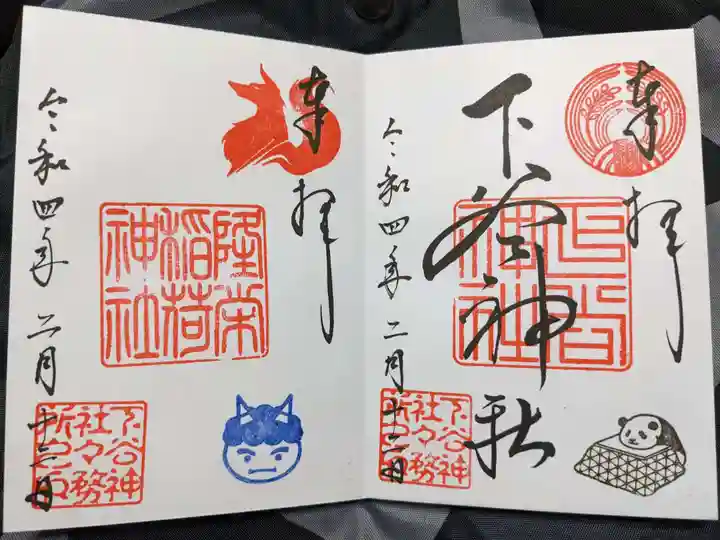 奉拝
下谷神社
下谷神社
令和四年二月十三日
下谷神
社々務
所之印
奉拝
隆栄
稲荷
神社
令和四年二月十三日
下谷神
社々務
所之印